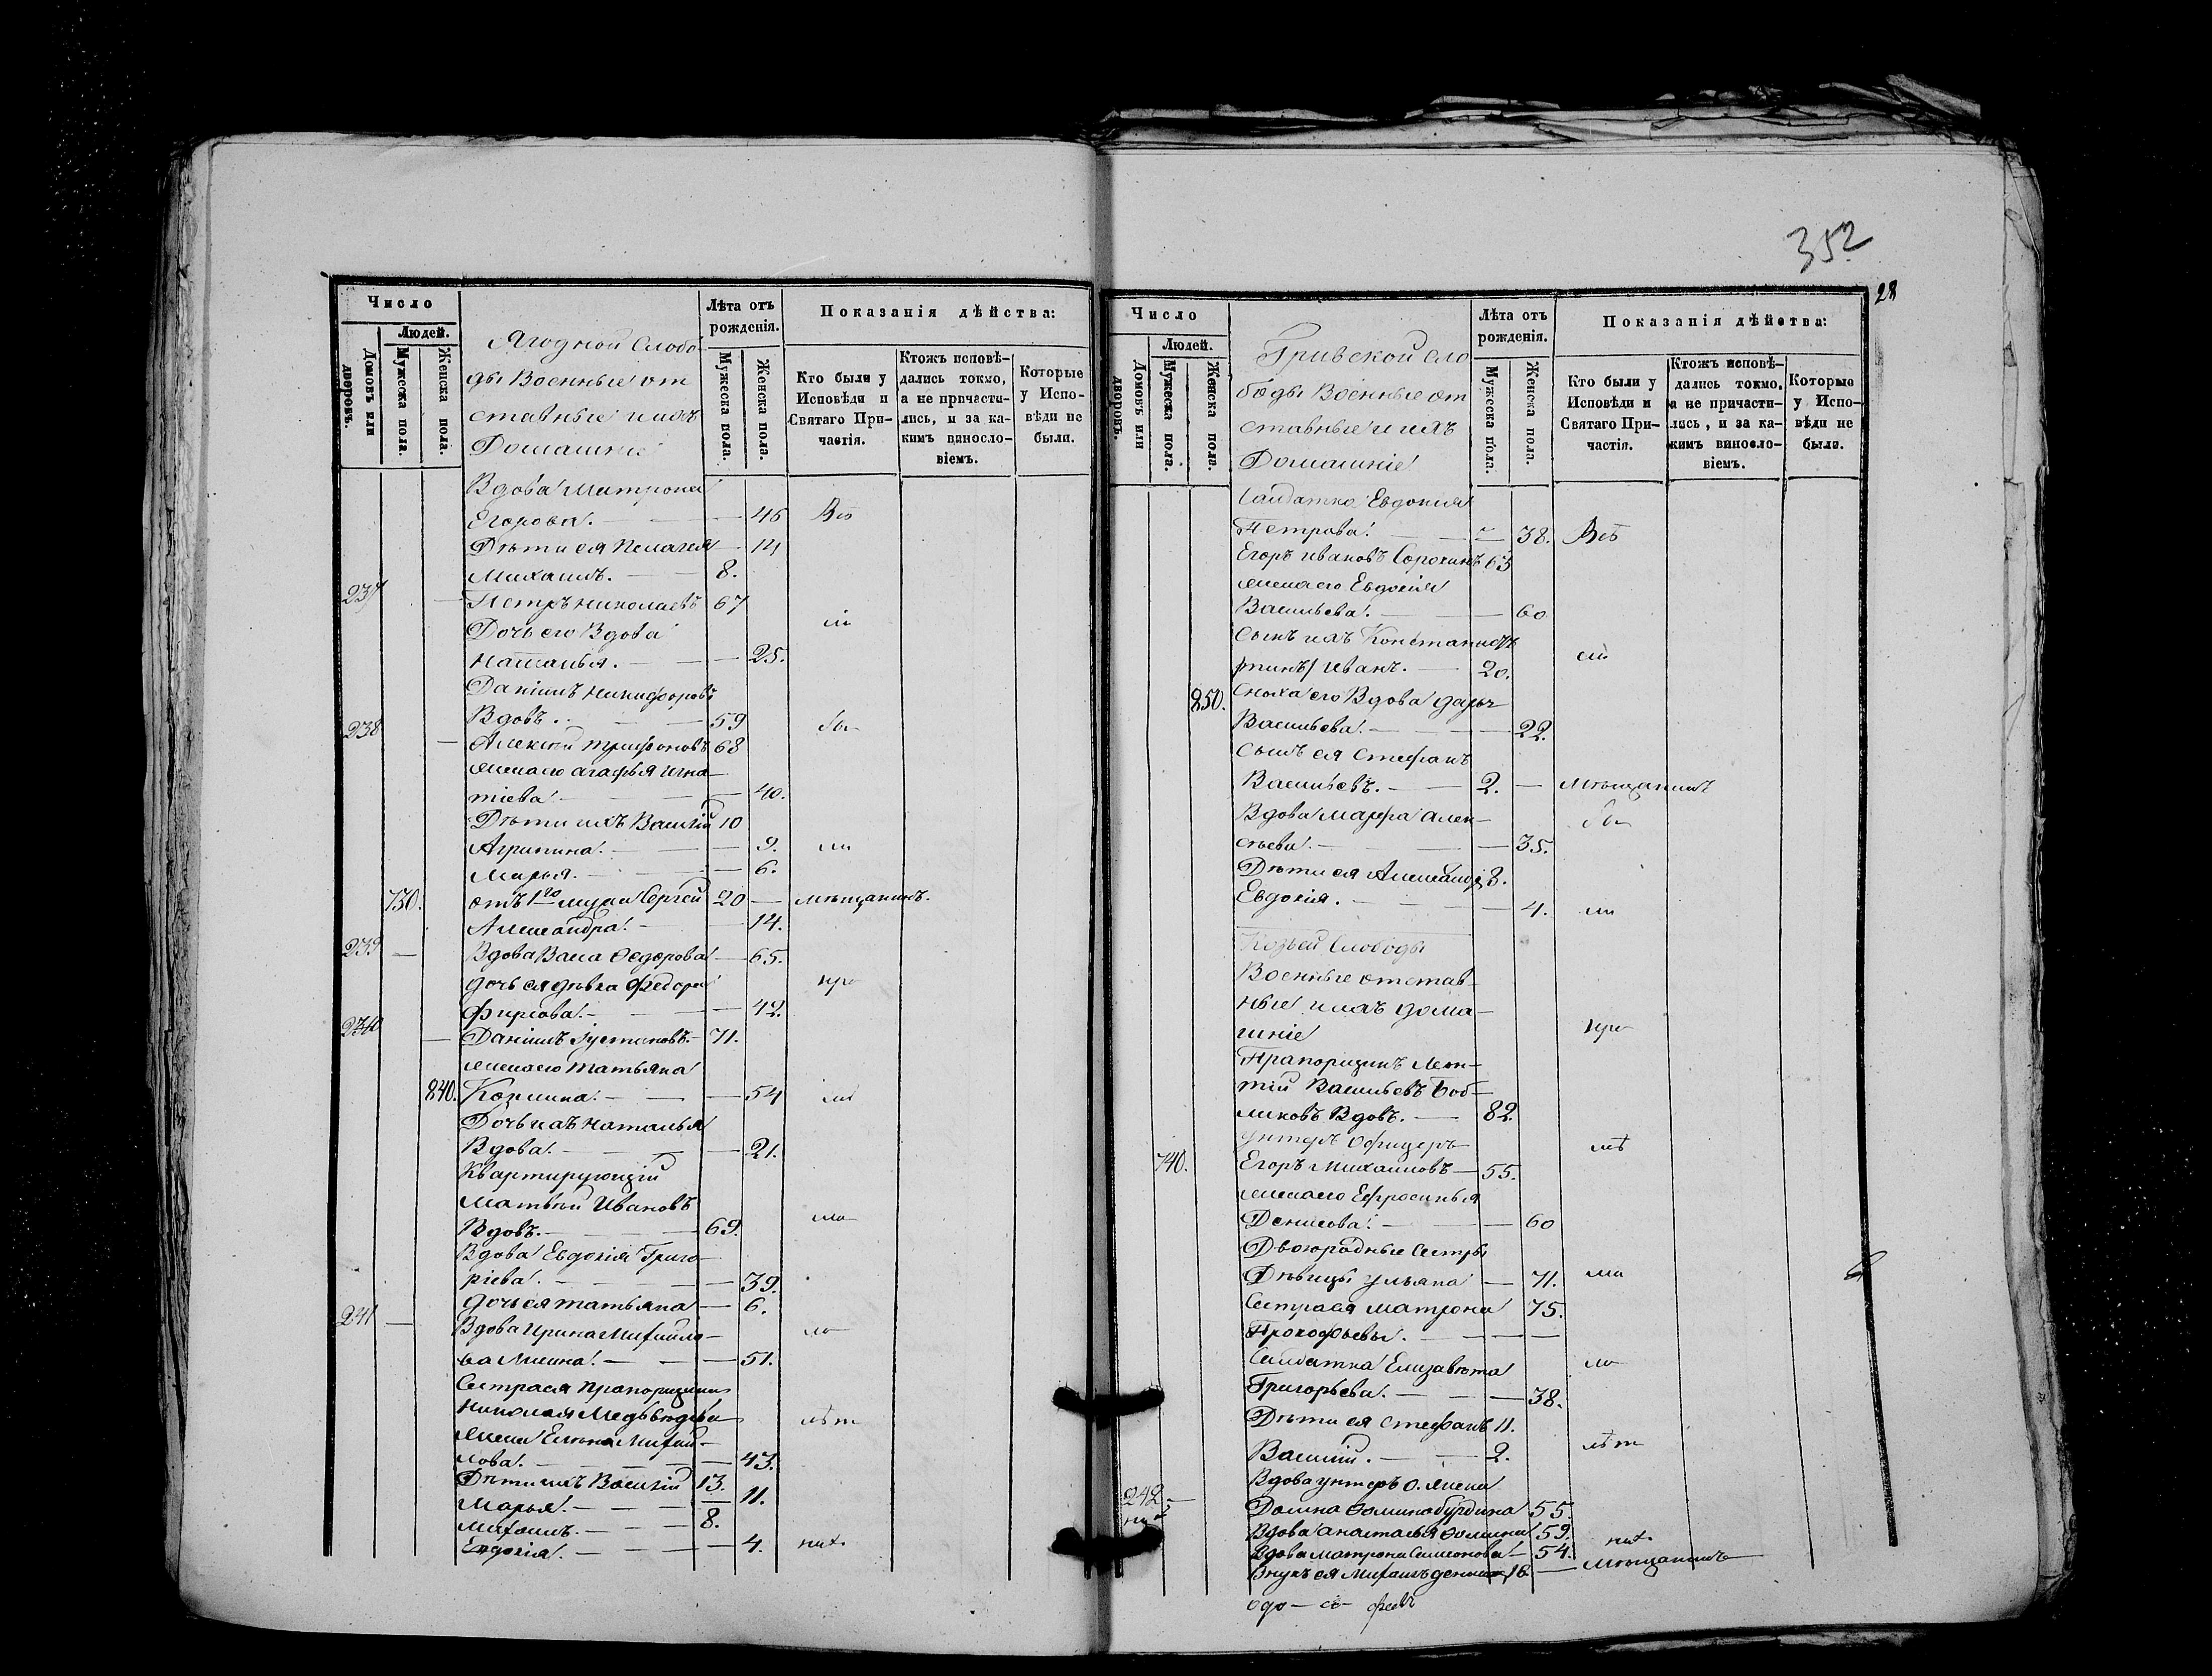 352
28
Число
Людей.
Домовъ или дворовъ.
Мужеска пола.
Женска пола.
Ягодной Слобо
ды Военные от
ставные и ихъ
Домашніе
Лѣта отъ рожденія.
Мужеска пола.
Женска пола.
Показанія дѣйства:
Кто были у Исповѣди и Святаго Причастія.
Ктожъ исповѣдались токмо, а не причастились, и за какимъ винословіемъ.
Которые у Исповѣди не были.
Вдова Матрона
Егорова. — — 46 Всѣ
Дѣти ея Пелагея — 14
Михаилъ. — 8.
237 — Петръ Николаевъ 67
Дочь его Вдова
Наталья. — — 25.
Даніилъ Никифоровъ
Вдовъ. — — 59
238 — Алексѣй Трифоновъ 68
жена его Агафья Игна—
тіева — — 40.
Дѣти ихъ Василій 10
Агрипина. — — 9.
Марья. — — 6.
730. отъ 1го мужа Сергей 20 — мѣщанинъ.
Александра. — — 14.
239 — Вдова Васса Федорова — 65.
дочь ея девка Федора
Фирсова. — — 42.
240 — Даніилъ Іустиновъ. — 71.
жена его Татьяна
840. Козмина. — — 54
Дочь ихъ Наталья
Вдова. — — 21.
Квартирующій
Матвѣй Ивановъ
Вдовъ. — — 69.
Вдова Евдокія Григо—
ріева. — — 39.
дочь ея Татьяна — 6.
241 — Вдова Ирина Михайло—
ва — — 51.
Сестра ея Прапорщика
Николая Медвѣдева
жена Елена Михай—
лова. — — 43.
Дѣти ихъ Василій 13.
Марья. — — 11.
Михаилъ. — — 8.
Евдокія. — — 4.
Число
Людей.
Домовъ или дворовъ.
Мужеска пола.
Женска пола.
Гривской сло
боды Военные от
ставные и ихъ
Домашніе
Лѣта отъ рожденія.
Мужеска пола.
Женска пола.
Показанія дѣйства:
Кто были у Исповѣди и Святаго Причастія.
Ктожъ исповѣдались токмо, а не причастились, и за какимъ винословіемъ.
Которые у Исповѣди не были.
Солдатка Евдокия
Петрова. — 38. Всѣ
Егоръ Ивановъ Сорокинъ 63
жена его Евдокія
Васильева. — — 60
Сынъ ихъ
Иванъ. — 20.
850. Сноха его Вдова Дарья
Васильева. — — 22.
Сынъ ея Стефанъ
Васильевъ. — — 2. — Мѣщанинъ
Вдова Марфа Алек—
сѣева. — — 35.
Дѣти ея Александр 8.
Евдокія. — — 4.
Козьей Слободы
Военные отстав—
ные и ихъ дома—
шніе
Прапорщикъ
Васильевъ
Вдовъ. — 82.
Унтеръ Офицеръ
740. Егоръ Михайловъ — 55.
жена его Ефросинья
Денисова. — — 60
Двоюродные Сестры
Дѣвицы Ульяна — 71.
Сестра ея Матрона 75.
Прокофьевы. — — —
Солдатка Елизавета
Григорьева. — — 38.
Дѣти ея Стефанъ 11.
Василий. — — 2.
Вдова унтеръ о. жена
242 — Домна Фомина 55.
Вдова Анастасья Фомина 59.
Вдова Матрона Симеонова — 54.
Внукъ ея Михаилъ 16 — Мѣщанинъ